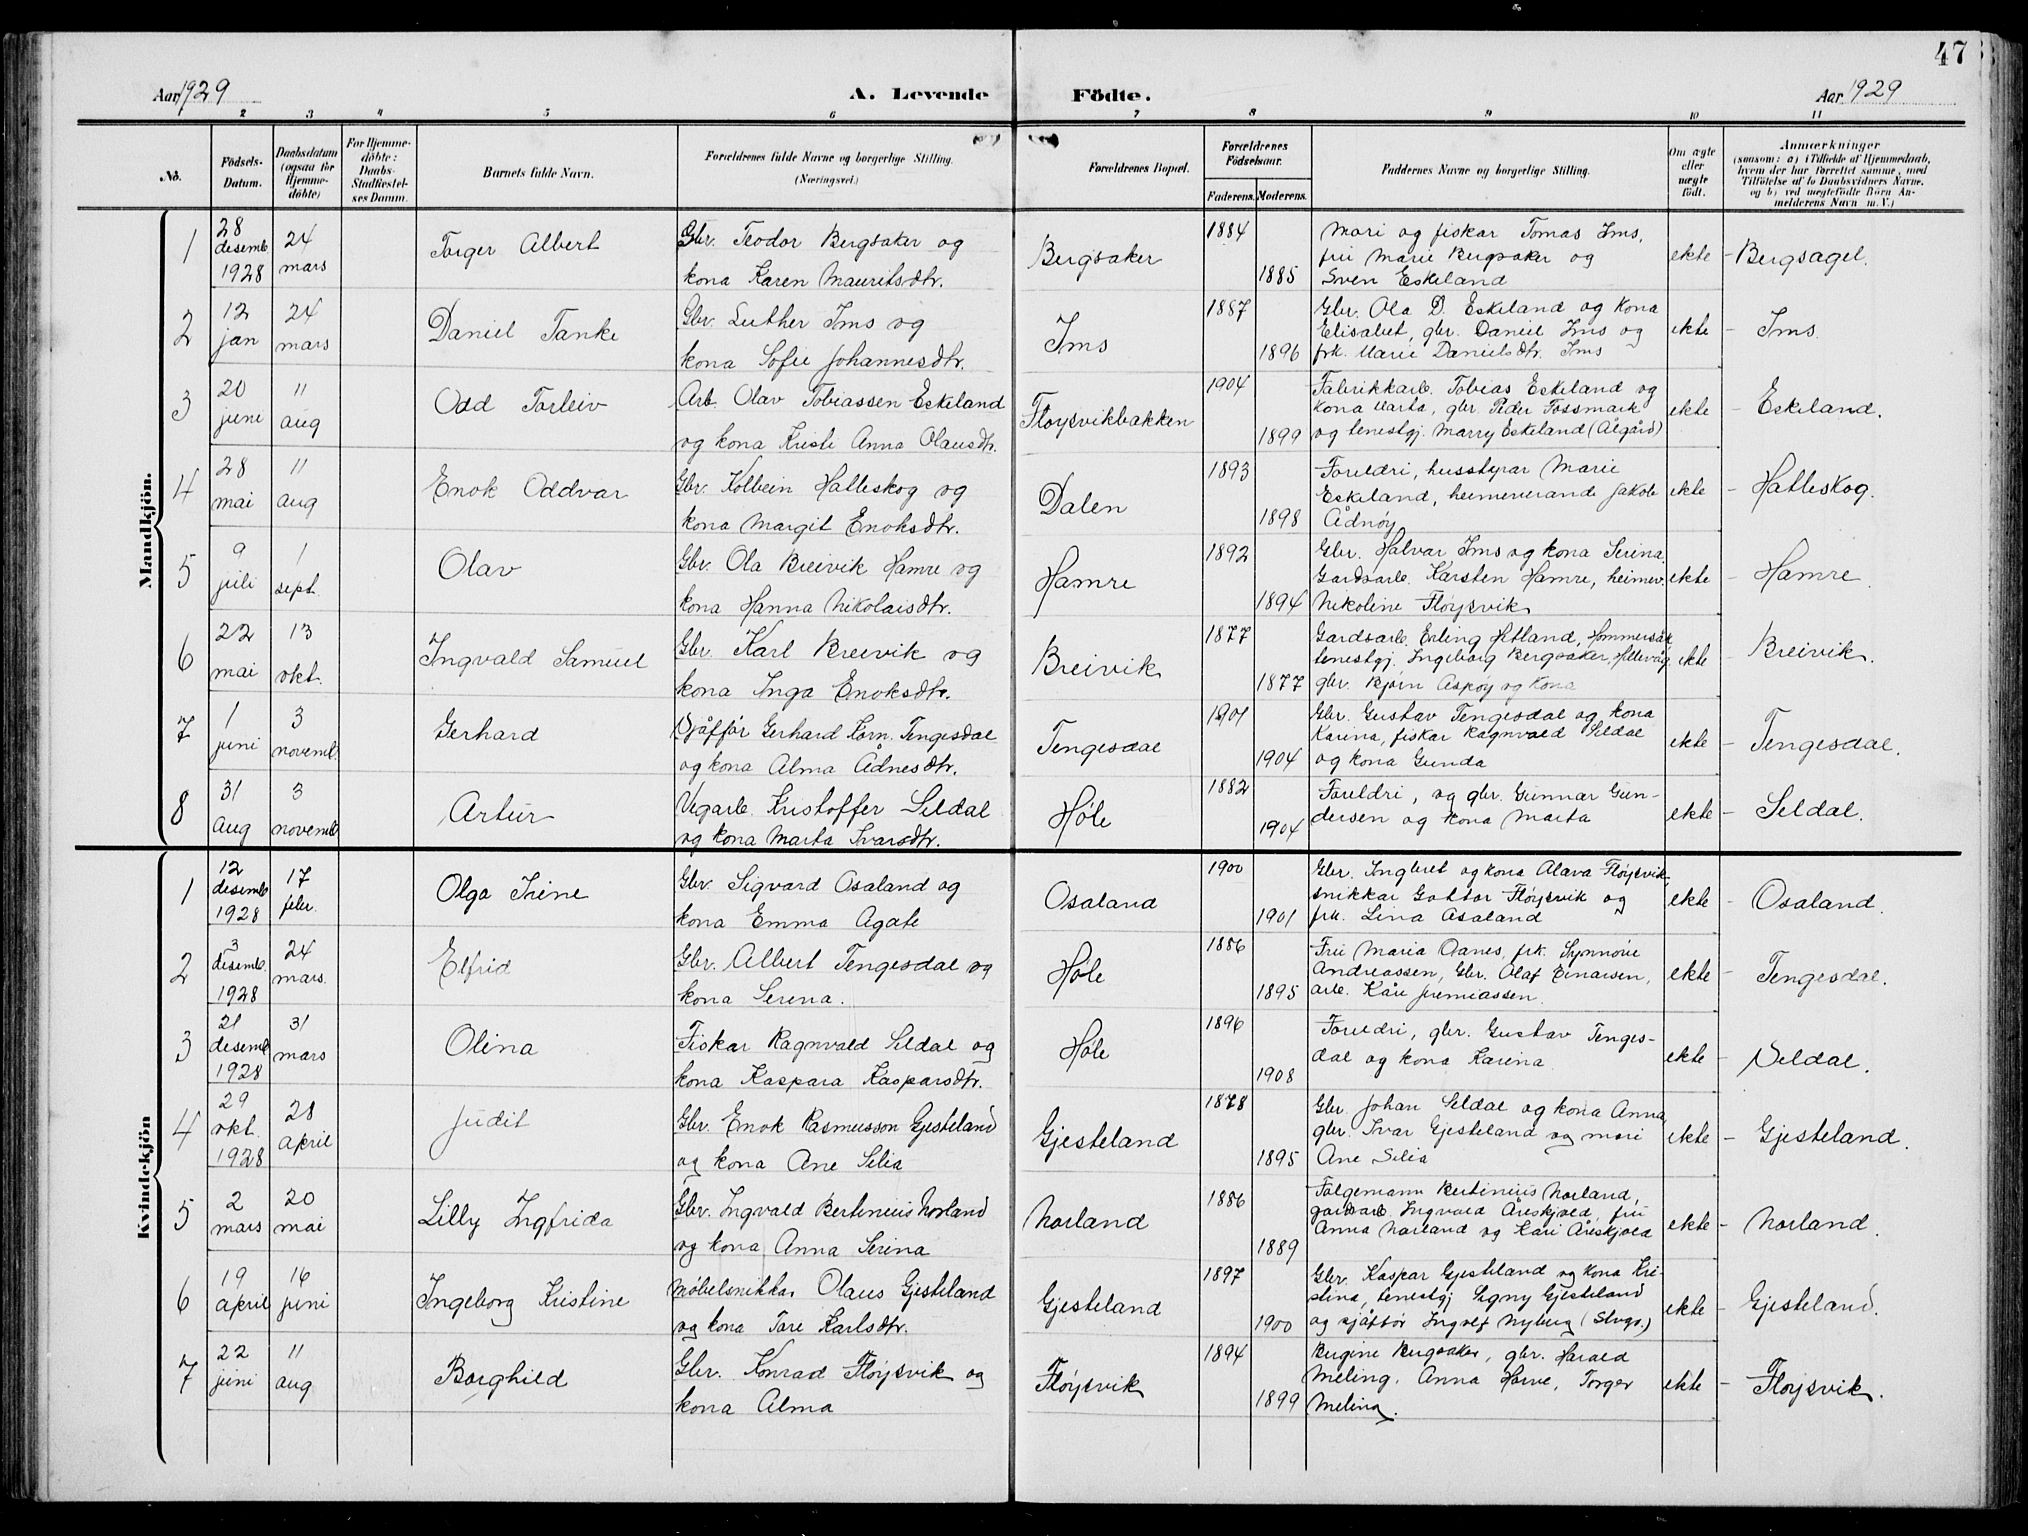 47
Aar 1929 A. Levende Födte. Aar 1929
1 2 3 4 5 6 7 8 9 10 11
No. Födsels-Datum. Daabsdatum (ogsaa for Hjemmedöbte) For Hjemmedöbte: Daabs-Stadfæstelses Datum. Barnets fulde Navn. Forældrenes fulde Navne og borgerlige Stilling. (Næringsvei.) Forældrenes Bopæl. Forældrenes Födselsaar. Faderens. Moderens. Faddernes Navne og borgerlige Stilling. Om ægte eller uægte födt. Anmærkninger (saasom: a) i Tilfælde af Hjemmedaab, hvem der har forrettet samme, med Tilföielse af to Daabsvidners Navne, og b) ved uægtefödte Börn Anmelderens Navn m. V.)
Mandkjön.
1 28 desemb. 1928 24 mars Torger Albert Gbr. Teodor Bergsaker og kona Karen Mauritsdtr. Bergsaker 1884 1885 Mori og fiskar Tomas Ims, frú Marie Bergsaker og Sven Eskeland ekte - Bergsagel.
2 12 jan 24 mars Daniel Tanke Gbr. Luther Ims og kona Sofie Johannesdtr. Ims 1887 1896 Gbr. Ola D. Eskeland og kona Elisabet, gbr. Daniel Ims og frk. Marie Danielsdtr. Ims ekte - Ims.
3 20 juni 11 aug Odd Torleiv Arb. Olav Tobiassen Eskeland og kona Kristi Anna Olausdtr. Fløysvikbakken 1904 1899 Fabrikkarb. Tobias Eskeland og kona Marta, gbr. Peder Fossmark og tenestgj. Marry Eskeland (Ålgård) ekte - Eskeland.
4 28 mai 11 aug Enok Oddvar Gbr. Kolbein Halleskog og kona Margit Enoksdtr. Dalen 1893 1898 Foreldri, husstyrar Marie Eskeland, heimeverande Jakob Ådnøy ekte - Halleskog.
5 9 juli 1 sept. Olav Gbr. Ola Breivik Hamre og kona Hanna Nikolaisdtr. Hamre 1892 1894 Gbr. Halvar Ims og kona Serina. Gardsarb. Karsten Hamre, heimev. Nikoline Fløysvik ekte - Hamre
6 22 mai 13 okt. Ingvald Samuel Gbr. Karl Breivik og kona Inga Enoksdtr. Breivik 1877 1877 Gardsarb. Erling Hetland, Hommersåk tenestgj. Ingeborg Bergsaker, Hillevåg gbr. Bjørn Aspøy og kona ekte - Breivik.
7 1 juni 3 novemb. Gerhard Sjåffør Gerhard Korn. Tengesdal og kona Alma Ådnesdtr. Tengesdal 1901 1904 Gbr. Gustav Tengesdal og kona Karina, fiskar Ragnvald Seldal og kona Gunda ekte - Tengesdal.
8 31 aug 3 novemb Artur Vegarb. Kristoffer Seldal og kona Marta Ivarsdtr. Høle 1882 1904 Foreldri, og gbr. Gunnar Gundersen og kona Marta ekte - Seldal.
Kvindekjön
1 12 desemb. 1928 17 febr. Olga Irene Gbr. Sigvard Osaland og kona Emma Agate Osaland 1900 1901 Gbr. Ingbret og kona Alava Fløysvik, snikkar Gottor Fløysvik og frk. Lina Osaland ekte - Osaland.
2 3 desemb. 1928 24 mars. Elfrid Gbr. Albert Tengesdal og kona Serena. Høle 1886 1895 Frú Maria Oanes, frk. Synnøve Andreassen, Gbr. Olaf Einarsen, arb. Kåre Jeremiassen. ekte - Tengesdal.
3 21 desemb 1928 31 mars Olina Fiskar Ragnvald Seldal og kona Kaspara Kasparsdtr. Høle 1896 1908 Foreldri, gbr. Gustav Tengesdal og kona Karina ekte - Seldal.
4 29 okt. 1928 28 april Judit Gbr. Enok Rasmusson Gjesteland og kona Ane Silia Gjesteland 1878 1895 Gbr. Johan Seldal og kona Anna, gbr. Ivar Gjesteland og mori Ane Silia ekte - Gjesteland.
5 2 mars 20 mai Lilly Ingfrida Gbr. Ingvald Bertinius Norland og kona Anna Serina Norland 1886 1889 Følgemann Bertinius Norland, gardsarb. Ingvald Åreskjold, frú Anna Norland og Kari Åreskjold ekte - Norland.
6 19 april 16 juni Ingeborg Kristine Møbelsnikkar Olaus Gjesteland og kona Tore Karlsdtr. Gjesteland 1897 1900 Gbr. Kaspar Gjesteland og kona Kristina, tenestgj Signy Gjesteland og sjåffør Ingolf Nyberg (Stvgr.) ekte - Gjesteland.
7 22 juni 11 aug Borghild Gbr. Konrad Fløysvik og kona Alma Fløysvik 1894 1899 Bergine Bergsaker, gbr. Harald Meling, Anna Horve, Torger Meling. ekte - Fløysvik.